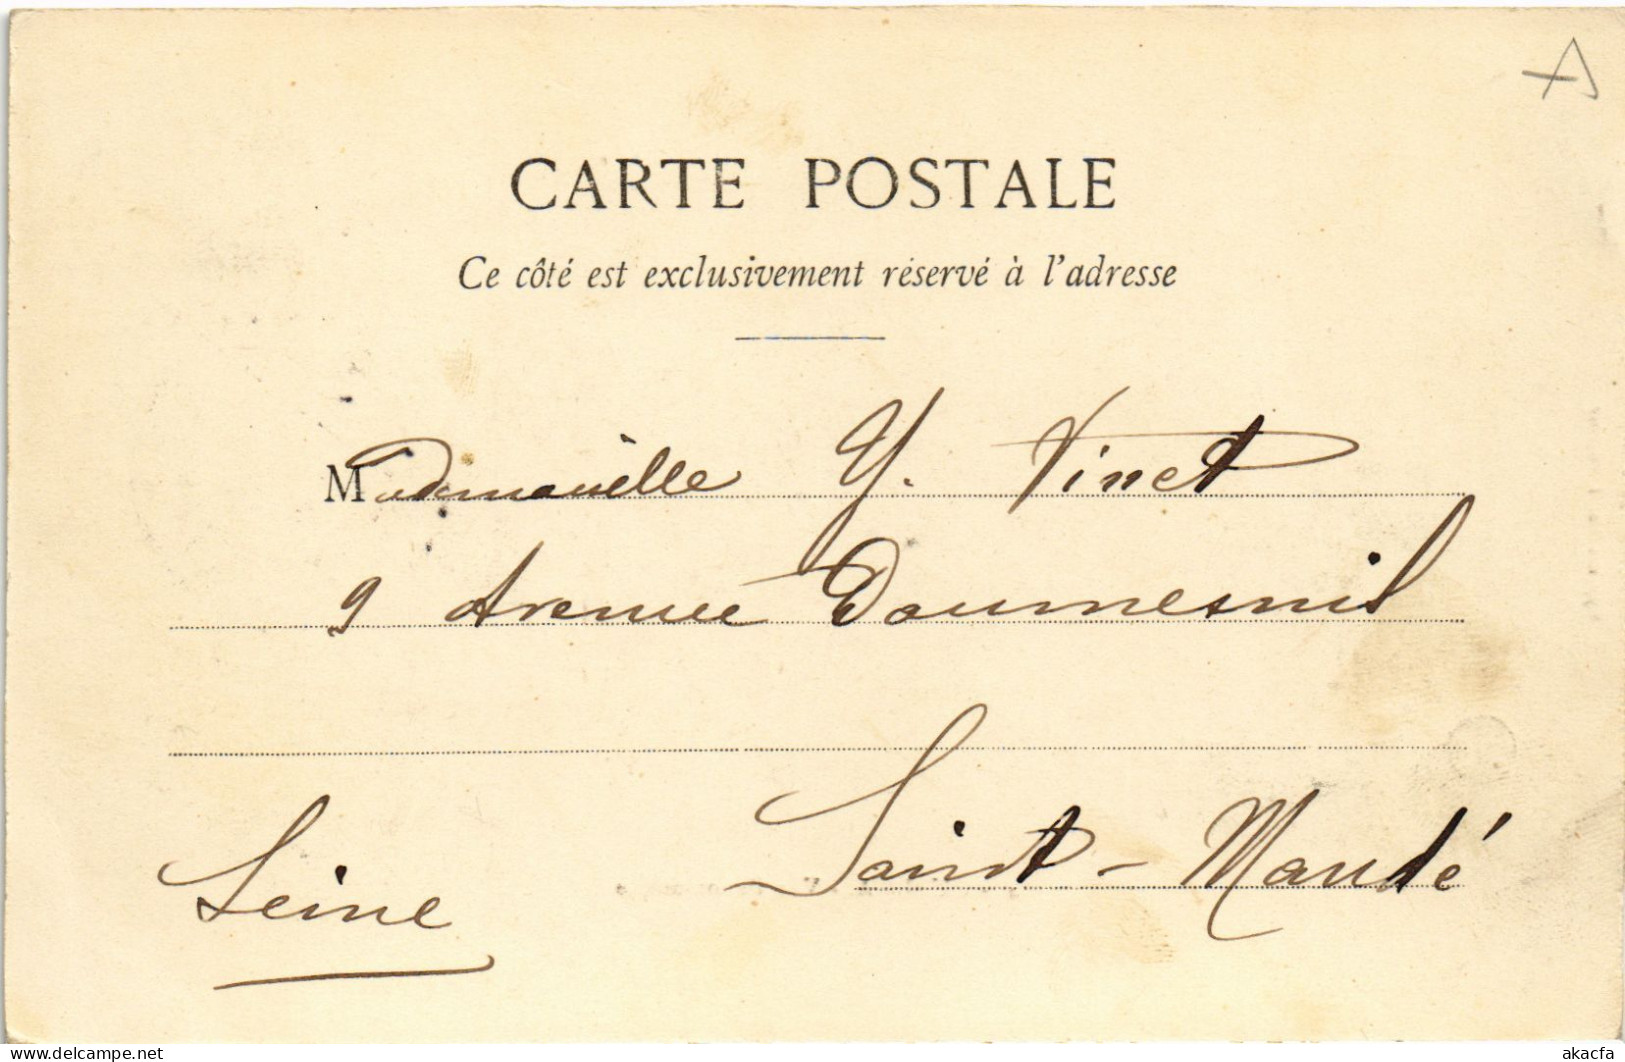 A
CARTE POSTALE
Ce côté est exclusivement réservé à l'adresse
Mademoiselle Y. Vinet
9 Avenue Daumesnil
Saint-Mandé
Seine
akacfa